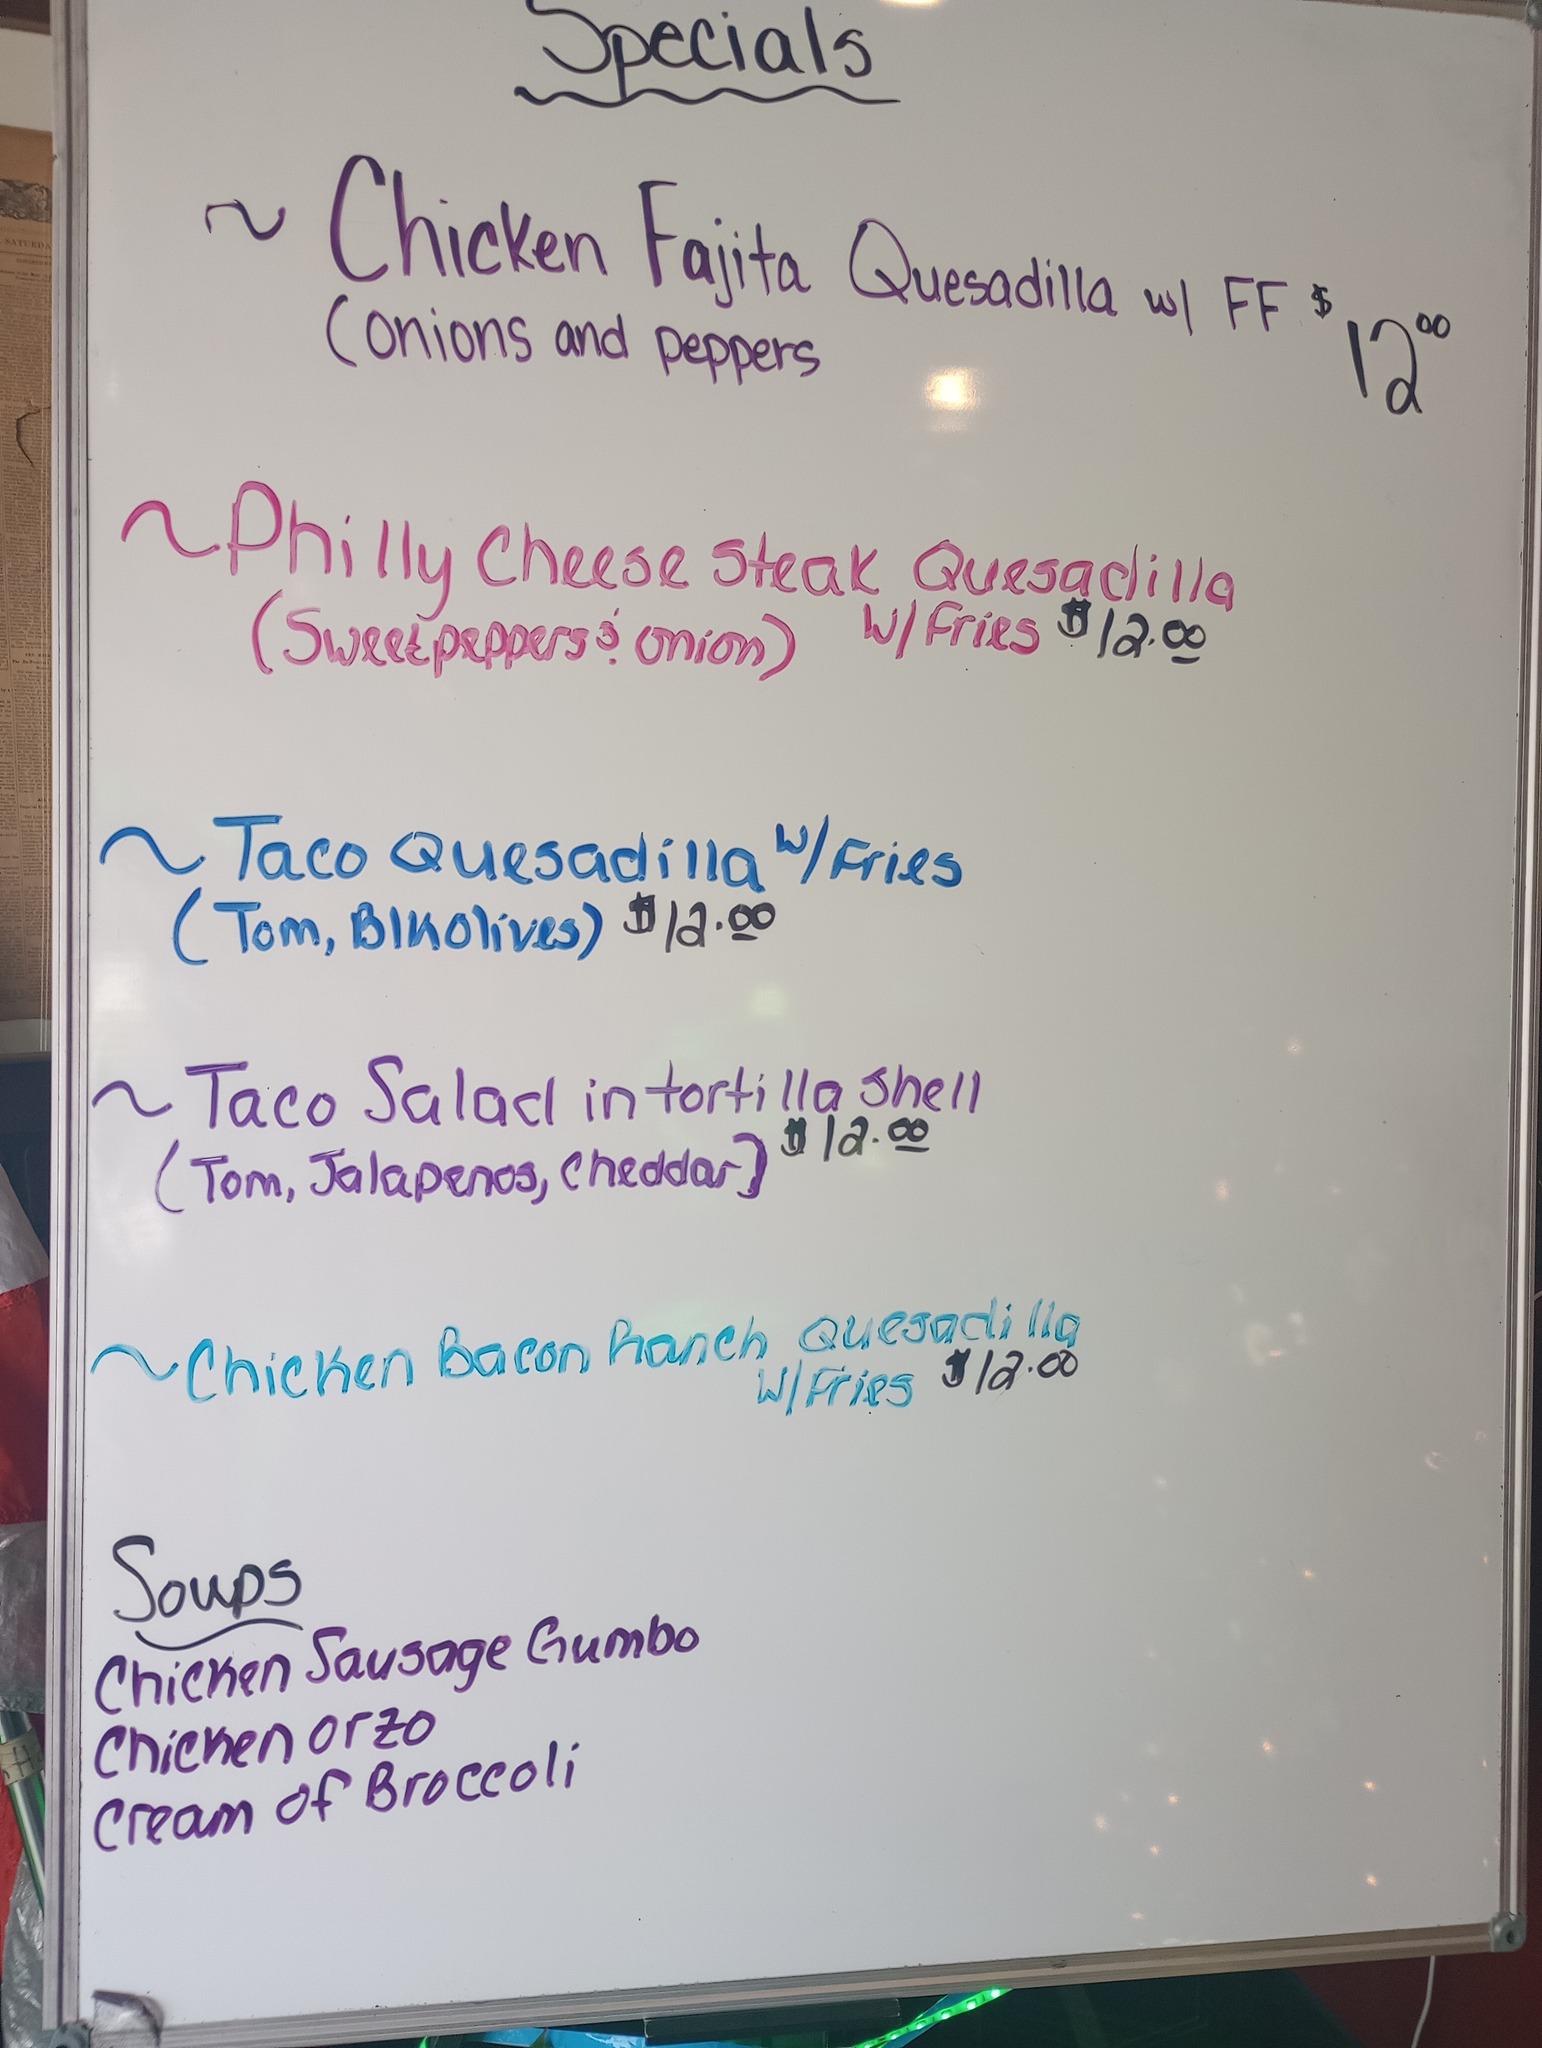 Specials
~ Chicken Fajita Quesadilla w/ FF $12.00
(onions and peppers
~Philly Cheese Steak Quesadilla
(Sweet peppers & onion) w/Fries $12.00
~Taco Quesadilla w/Fries
(Tom, Blk olives) $12.00
~Taco Salad in tortilla shell
(Tom, Jalapenos, cheddar) $12.00
~Chicken Bacon Ranch Quesadilla
w/Fries $12.00
Soups
Chicken Sausage Gumbo
Chicken orzo
Cream of Broccoli